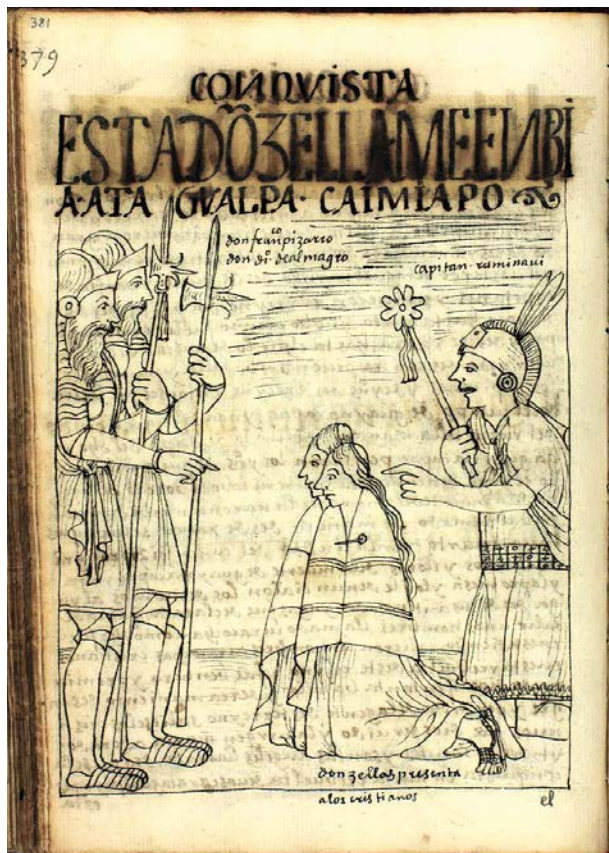 381
379
CONQVISTA
ESTADÕZELLAMEENBI
A·ATAGVALPA·CAIMIAPO
don franco pizarro
don do de almagro
capitan·ruminaui
donzellas presenta
a los cristianos
el